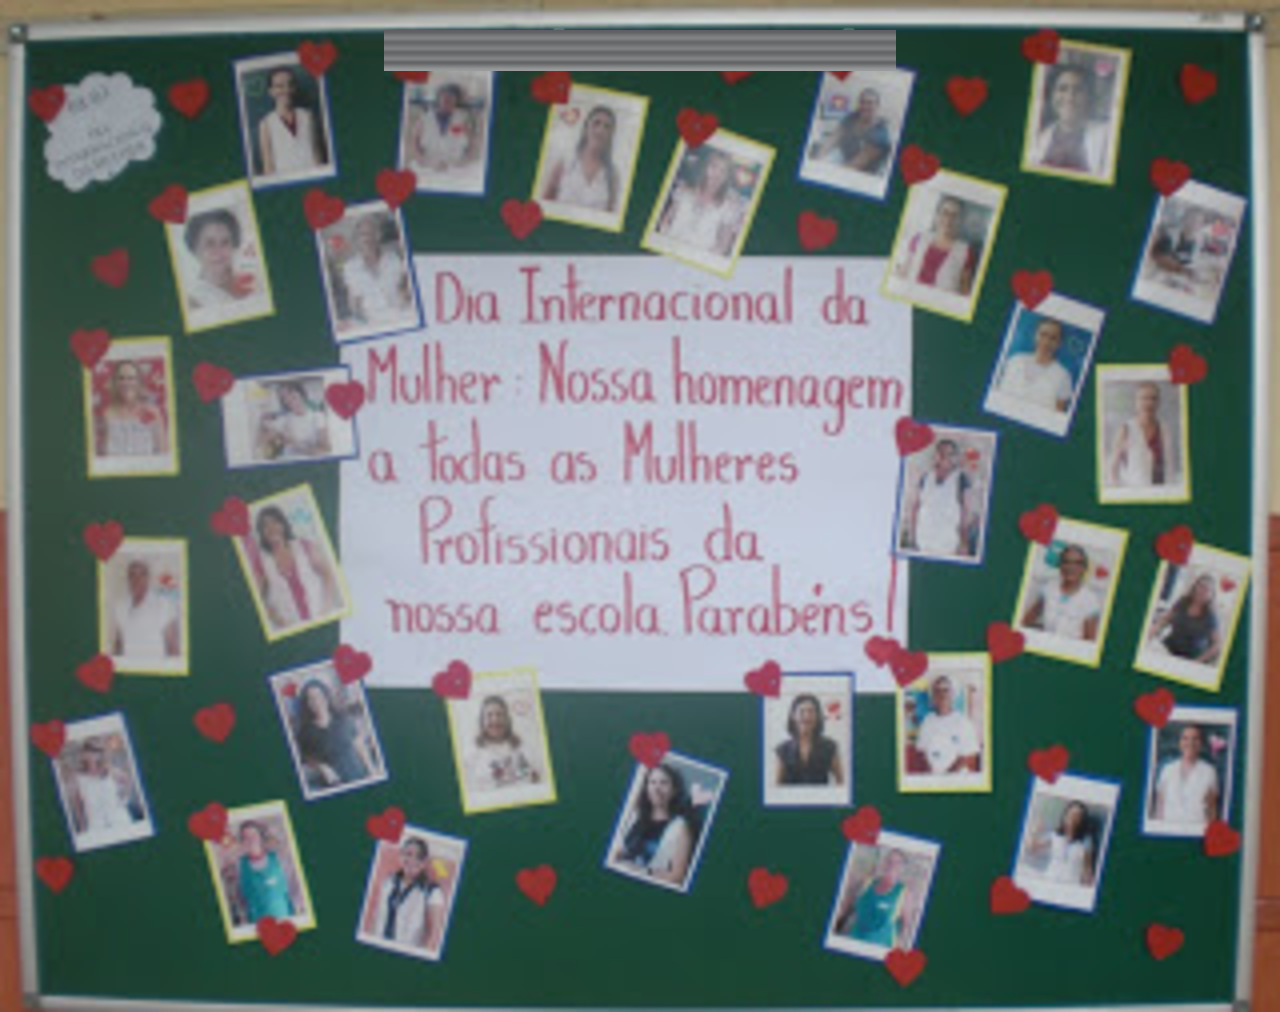 Dia Internacional da
Mulher: Nossa homenagem
a todas as Mulheres
Profissionais da
nossa escola. Parabéns!